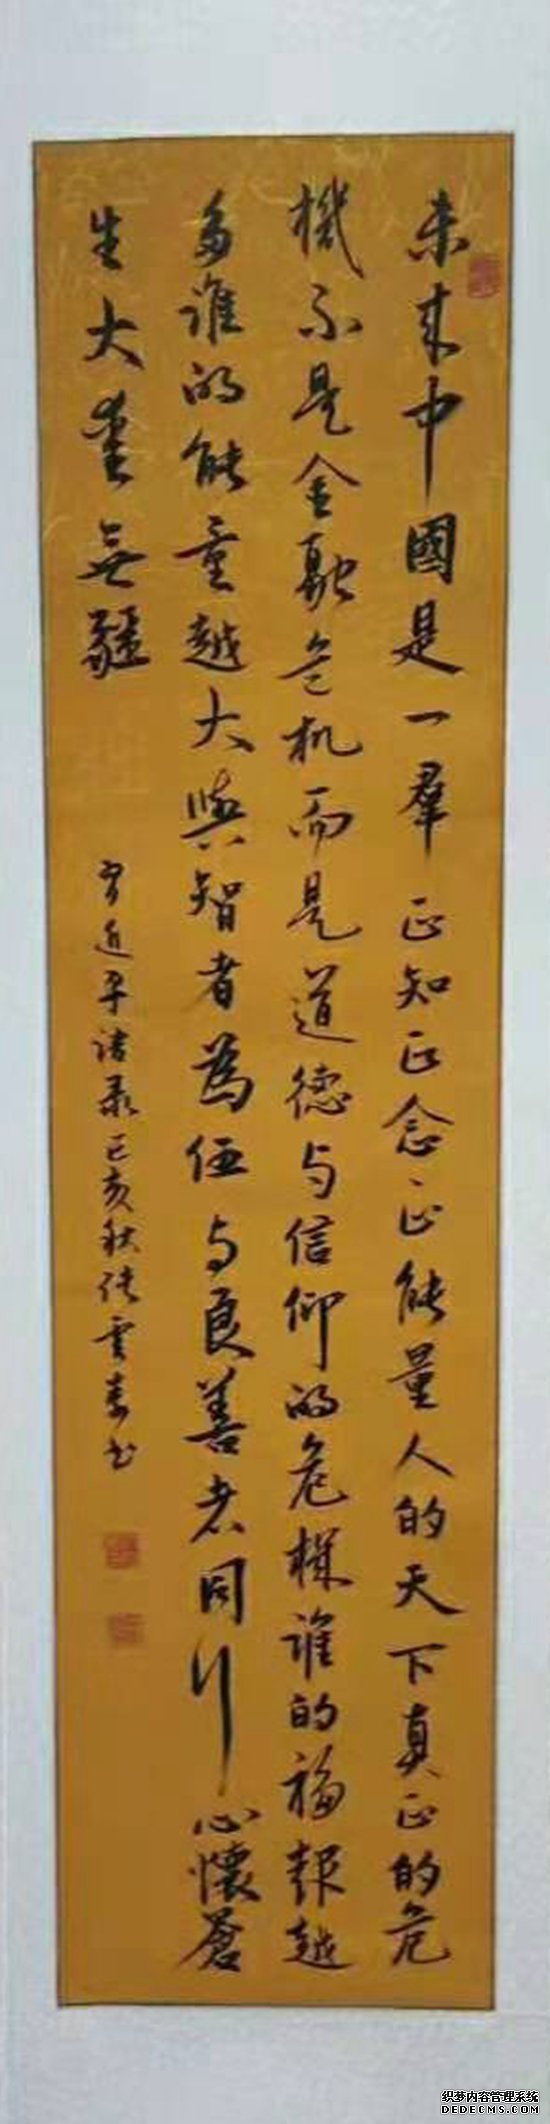 未来中國是一羣正知正念、正能量人的天下真正的危
機不是金融危机而是道德与信仰的危機誰的福報越
多誰的能量越大與智者為伍与良善者同行心懷蒼
生大愛無疆
习近平语录己亥秋张云来书
织梦内容管理系统
DEDECMS.COM